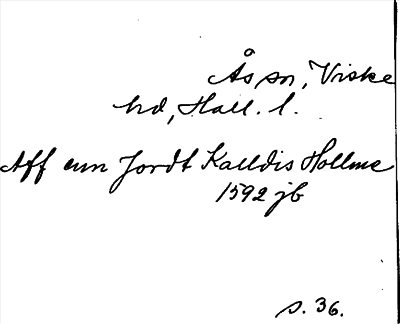 Ås sn, Viske
hd, Hall. l.
Aff enn Jordt Kalldis Hollme
1592 jb
s. 36.